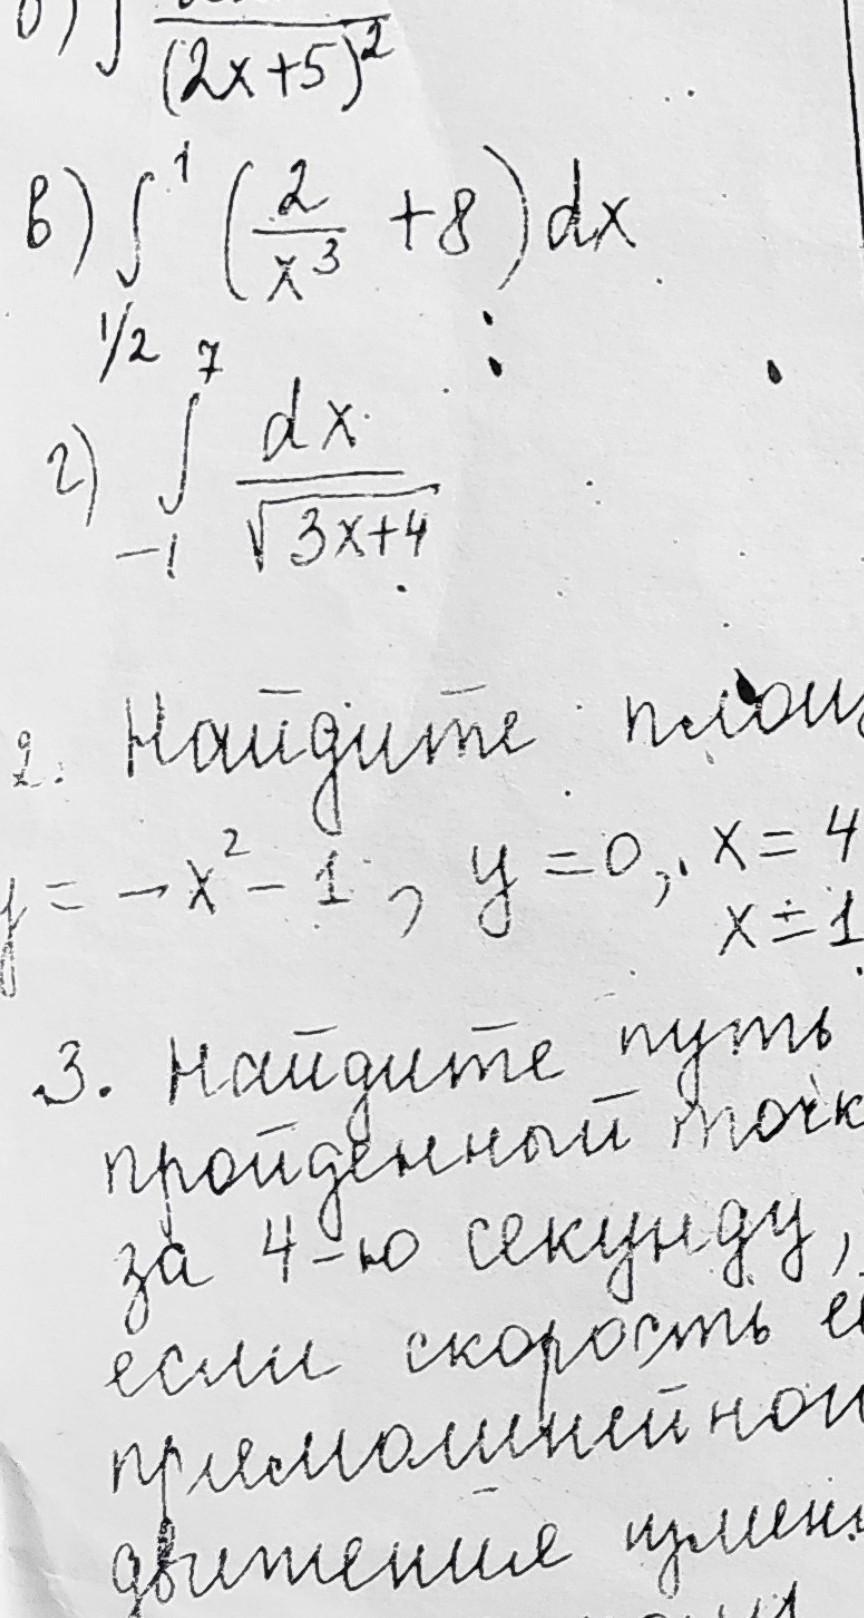 (2x+5)²
в) ∫ 1 1/2 (2/x³ + 8) dx
г) ∫ 7 -1 dx/√3x+4
2. Найдите площ
y = -x² - 1, y = 0, x = 4
x = 1
3. Найдите путь
пройденный точк
за 4-ю секунду,
если скорость её
прямолинейном
движения измен